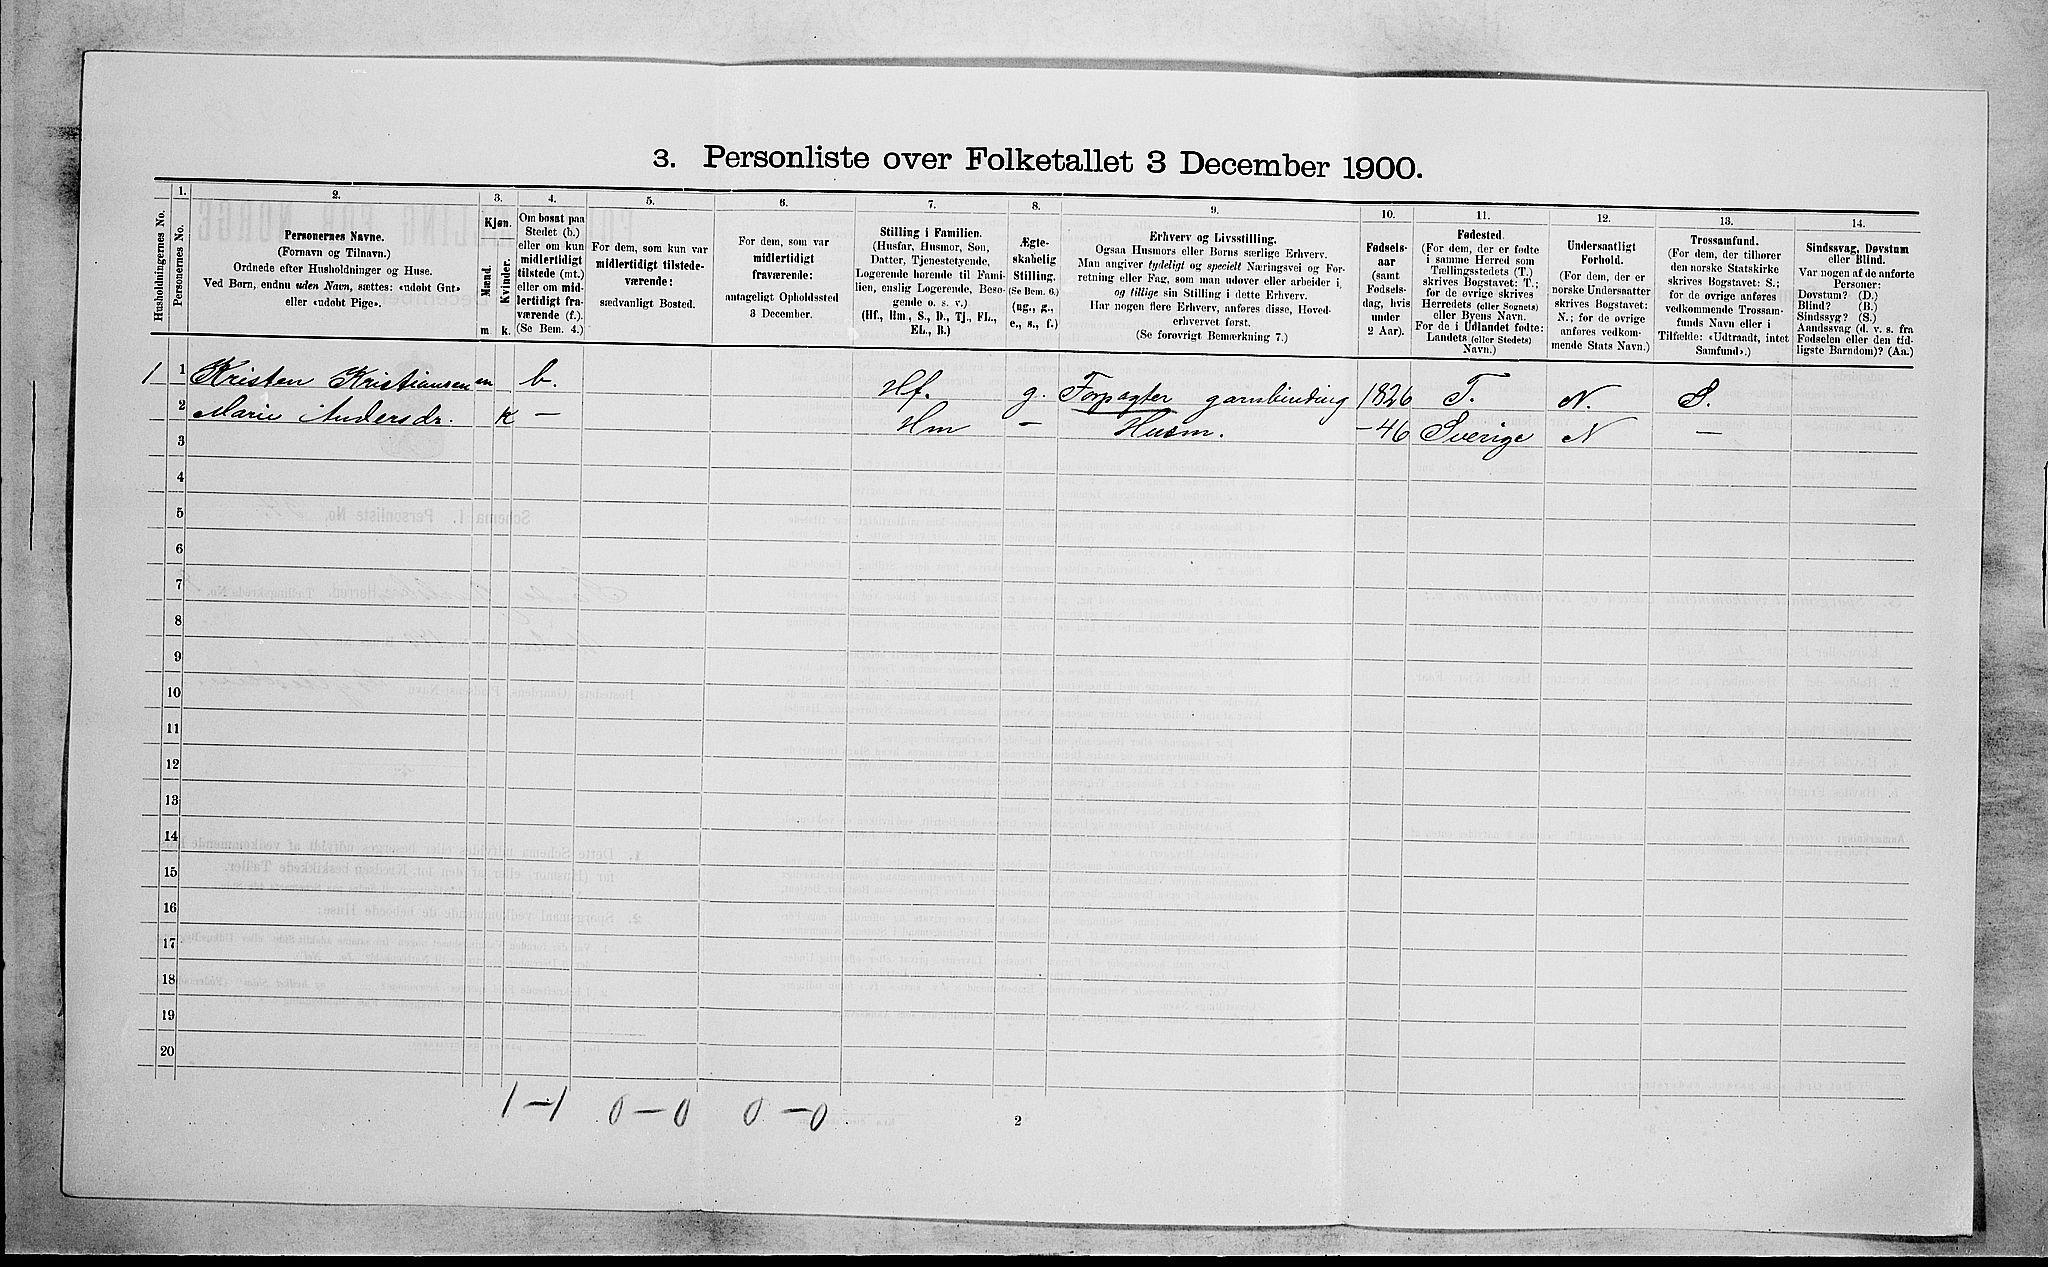 3. Personliste over Folketallet 3 December 1900.
Husholdningernes No.
1.
Personernes No.
2.
Personernes Navne.
(Fornavn og Tilnavn.)
Ordnede efter Husholdninger og Huse.
Ved Børn, endnu uden Navn, sættes: «udøbt Gut»
eller «udøbt Pige».
3.
Kjøn.
Mænd.
Kvinder.
m k.
4.
Om bosat paa
Stedet (b.)
eller om kun
midlertidigt
tilstede (mt.)
eller om mid-
lertidigt fra-
værende (f.).
(Se Bem. 4.)
5.
For dem, som kun var
midlertidigt tilstede-
værende:
sædvanligt Bosted.
6.
For dem, som var
midlertidigt
fraværende:
antageligt Opholdssted
3 December.
7.
Stilling i Familien.
(Husfar, Husmor, Søn,
Datter, Tjenestetyende,
Logerende hørende til Fami-
lien, enslig Logerende, Besø-
gende o. s. v.)
(Hf., Hm., S., D., Tj., FL.,
EL., B.)
8.
Ægte-
skabelig
Stilling.
(Se Bem. 6.)
(ug., g.,
e., s., f.)
9.
Erhverv og Livsstilling.
Ogsaa Husmors eller Børns særlige Erhverv.
Man angiver tydeligt og specielt Næringsvei og For-
retning eller Fag, som man udøver eller arbeider i,
og tillige sin Stilling i dette Erhverv.
Har nogen flere Erhverv, anføres disse, Hoved-
erhvervet først.
(Se forøvrigt Bemærkning 7.)
10.
Fødsels-
aar
(samt
Fødsels-
dag, hvis
under
2 Aar).
11.
Fødested.
(For dem, der er fødte
i samme Herred som
Tællingsstedets (T.)
skrives Bogstavet: T.;
for de øvrige skrives
Herredets (eller Sognets)
eller Byens Navn.
For de i Udlandet fødte:
Landets (eller Stedets)
Navn.)
12.
Undersaatligt
Forhold.
(For dem, der er
norske Undersaatter
skrives Bogstavet:
N.; for de øvrige
anføres vedkom-
mende Stats Navn.)
13.
Trossamfund.
(For dem, der tilhører
den norske Statskirke
skrives Bogstavet: S.;
for de øvrige anføres
vedkommende Trossam-
funds Navn eller i
Tilfælde: «Udtraadt, intet
Samfund».)
14.
Sindssvag, Døvstum
eller Blind.
Var nogen af de anførte
Personer:
Døvstum? (D.)
Blind? (B.)
Sindssyg? (S.)
Aandssvag (d. v. s. fra
Fødselen eller den tid-
ligste Barndom)? (Aa.)
1 1 Kristen Kristiansen m b. Hf. g. Forpagter garnbinding 1826 T. N. S.
2 Marie Andersdr. k — Hm — Husm. -46 Sverige N —
3
4
5
6
7
8
9
10
11
12
13
14
15
16
17
18
19
20
1 — 1 0 — 0 0 — 0
2